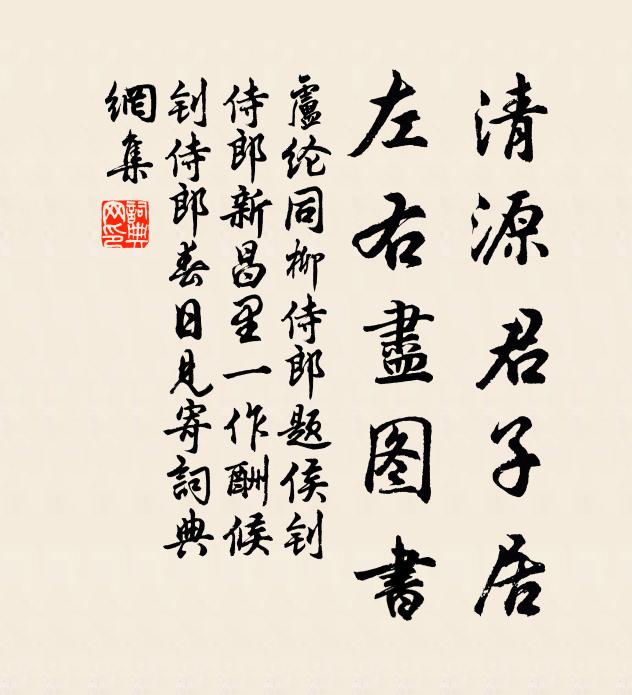 清源君子居
左右盡图書
盧纶同柳侍郎题侯钊
侍郎新昌里一作酬候
钊侍郎春日見寄詞典
網集
詞典网印